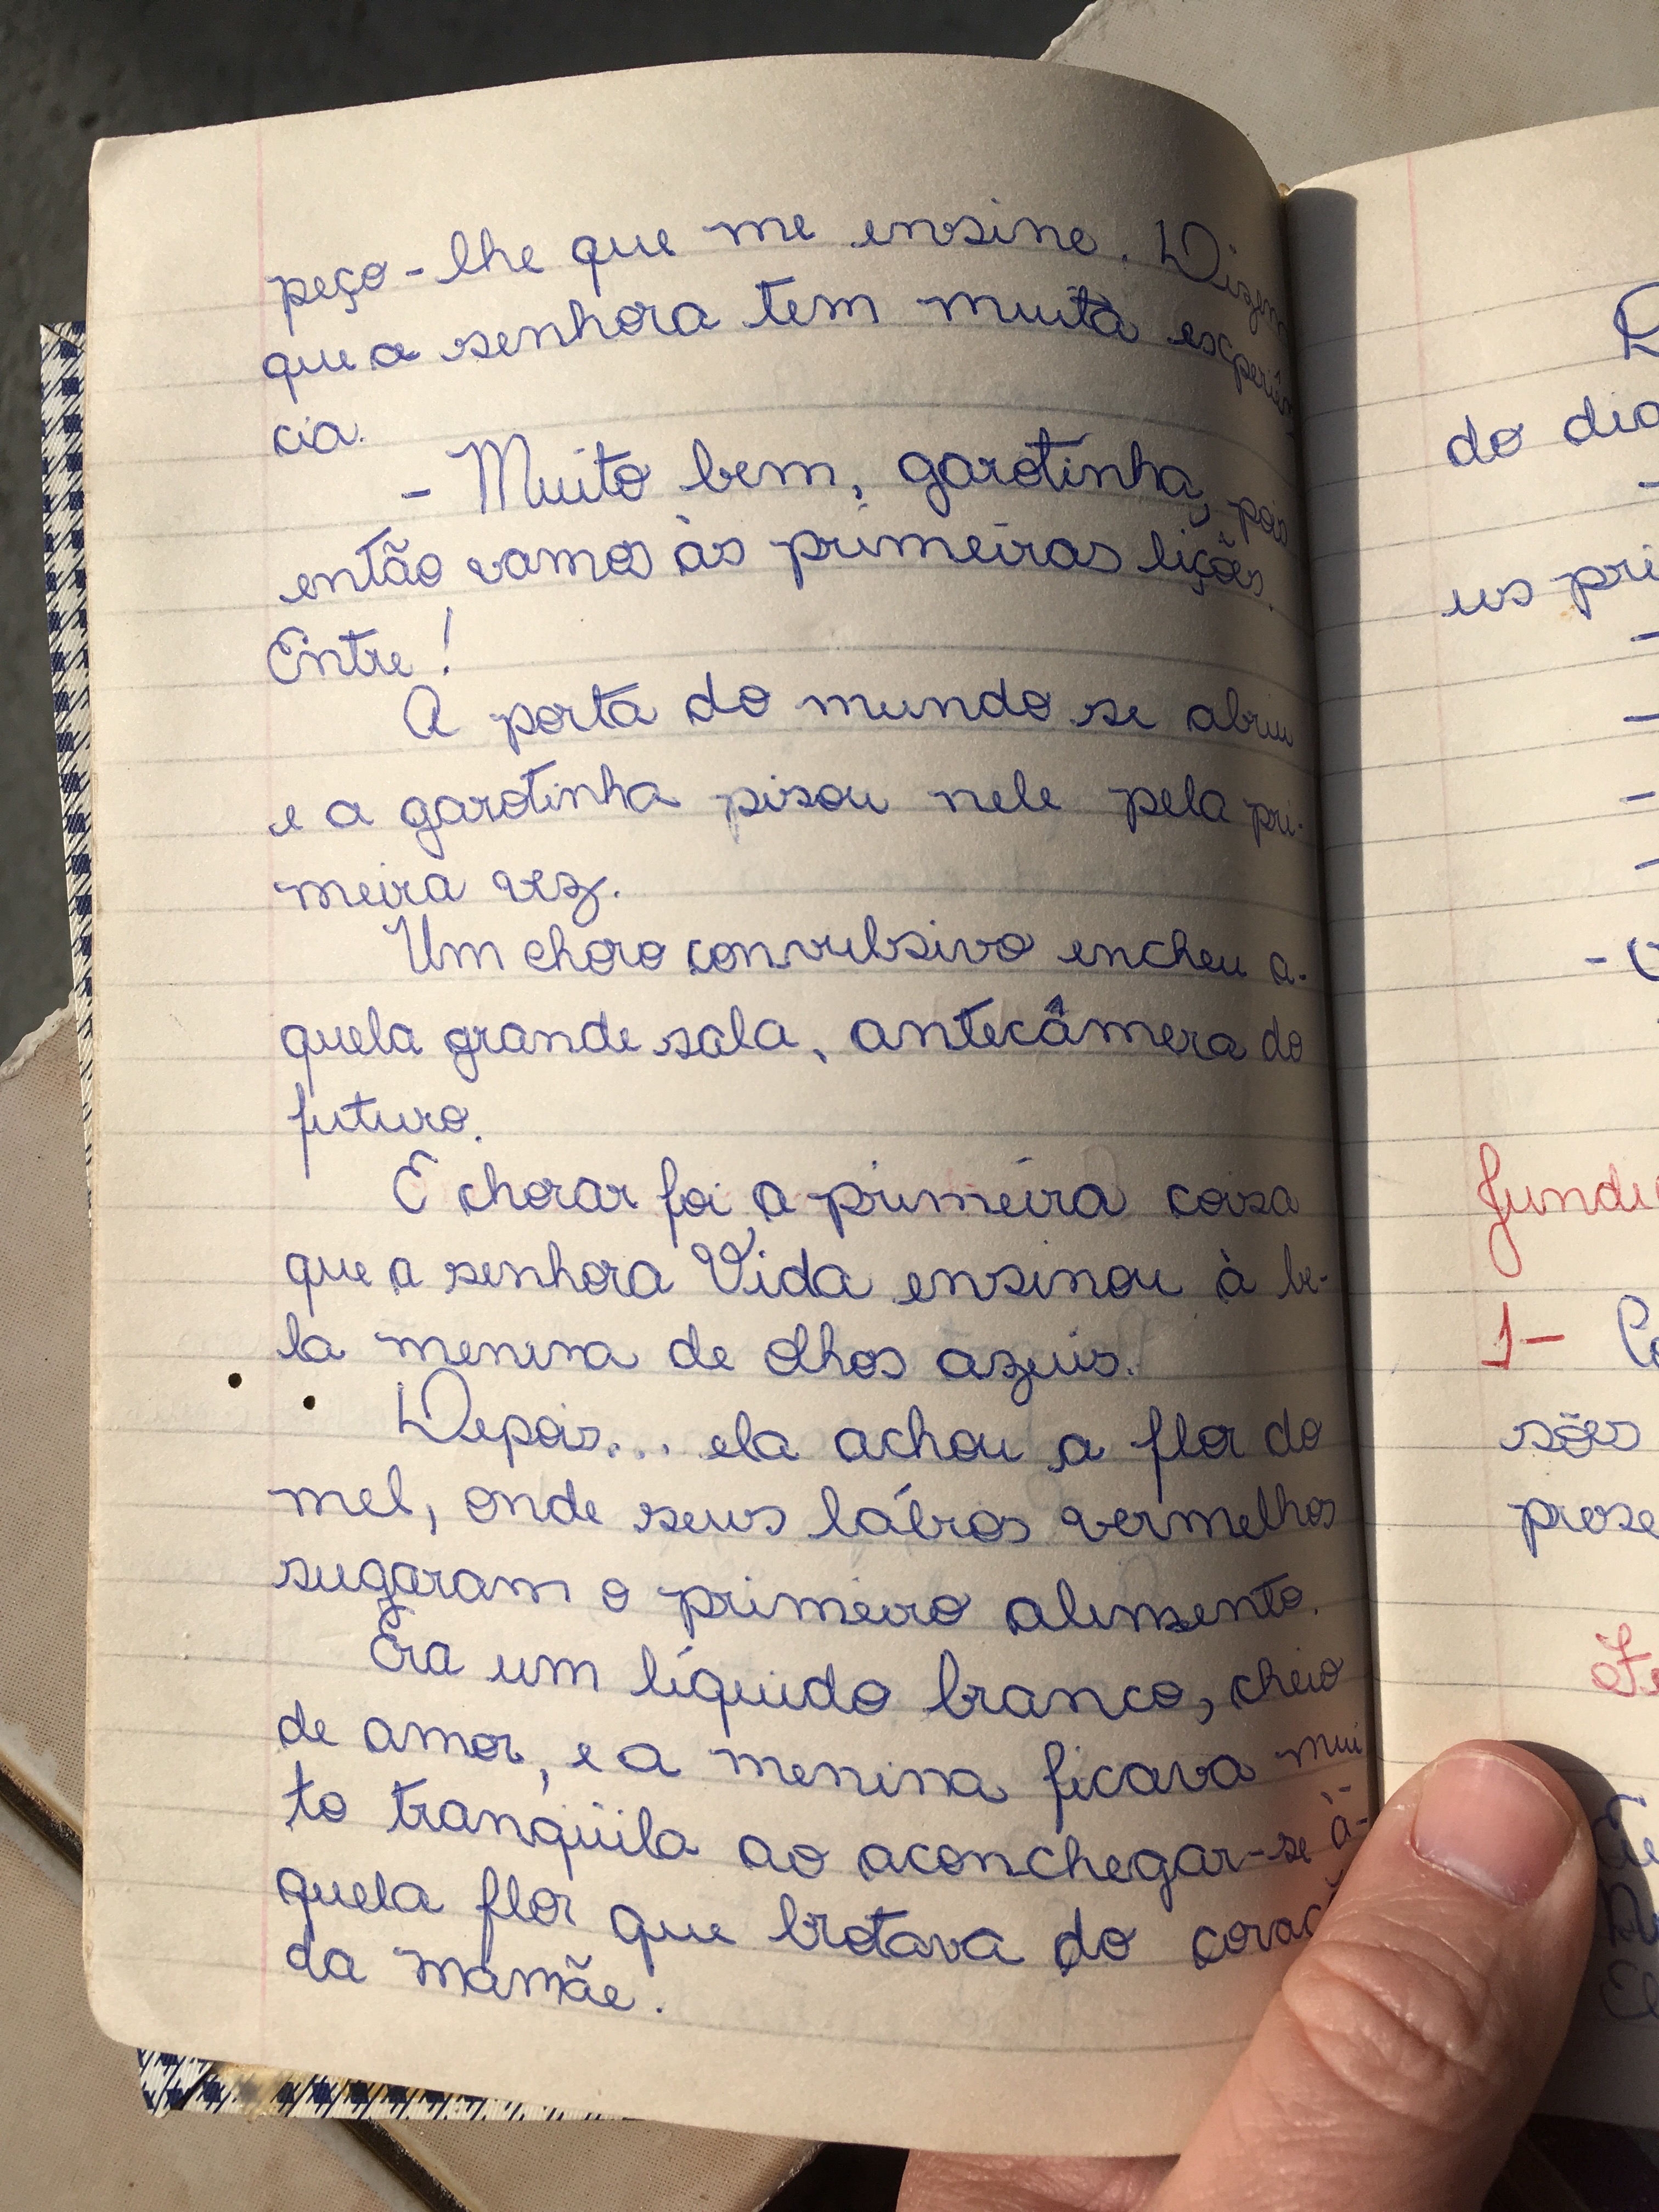 peço-lhe que me ensine. Dizem
que a senhora tem muita experiên
cia.
- Muito bem, garotinha, pois
então vamos às primeiras lições.
Entre!
A porta do mundo se abriu
e a garotinha pisou nele pela pri-
meira vez.
Um choro convulsivo encheu a-
quela grande sala, antecâmera do
futuro.
E chorar foi a primeira coisa
que a senhora Vida ensinou à be-
la menina de olhos azuis.
Depois... ela achou a flor do
mel, onde seus lábios vermelhos
sugaram o primeiro alimento.
Era um líquido branco, cheio
de amor, e a menina ficava mui-
to tranqüila ao aconchegar-se à-
quela flor que brotava do coraç
da mamãe.
do dia
us pri
fundi
1- Co
sões
prose